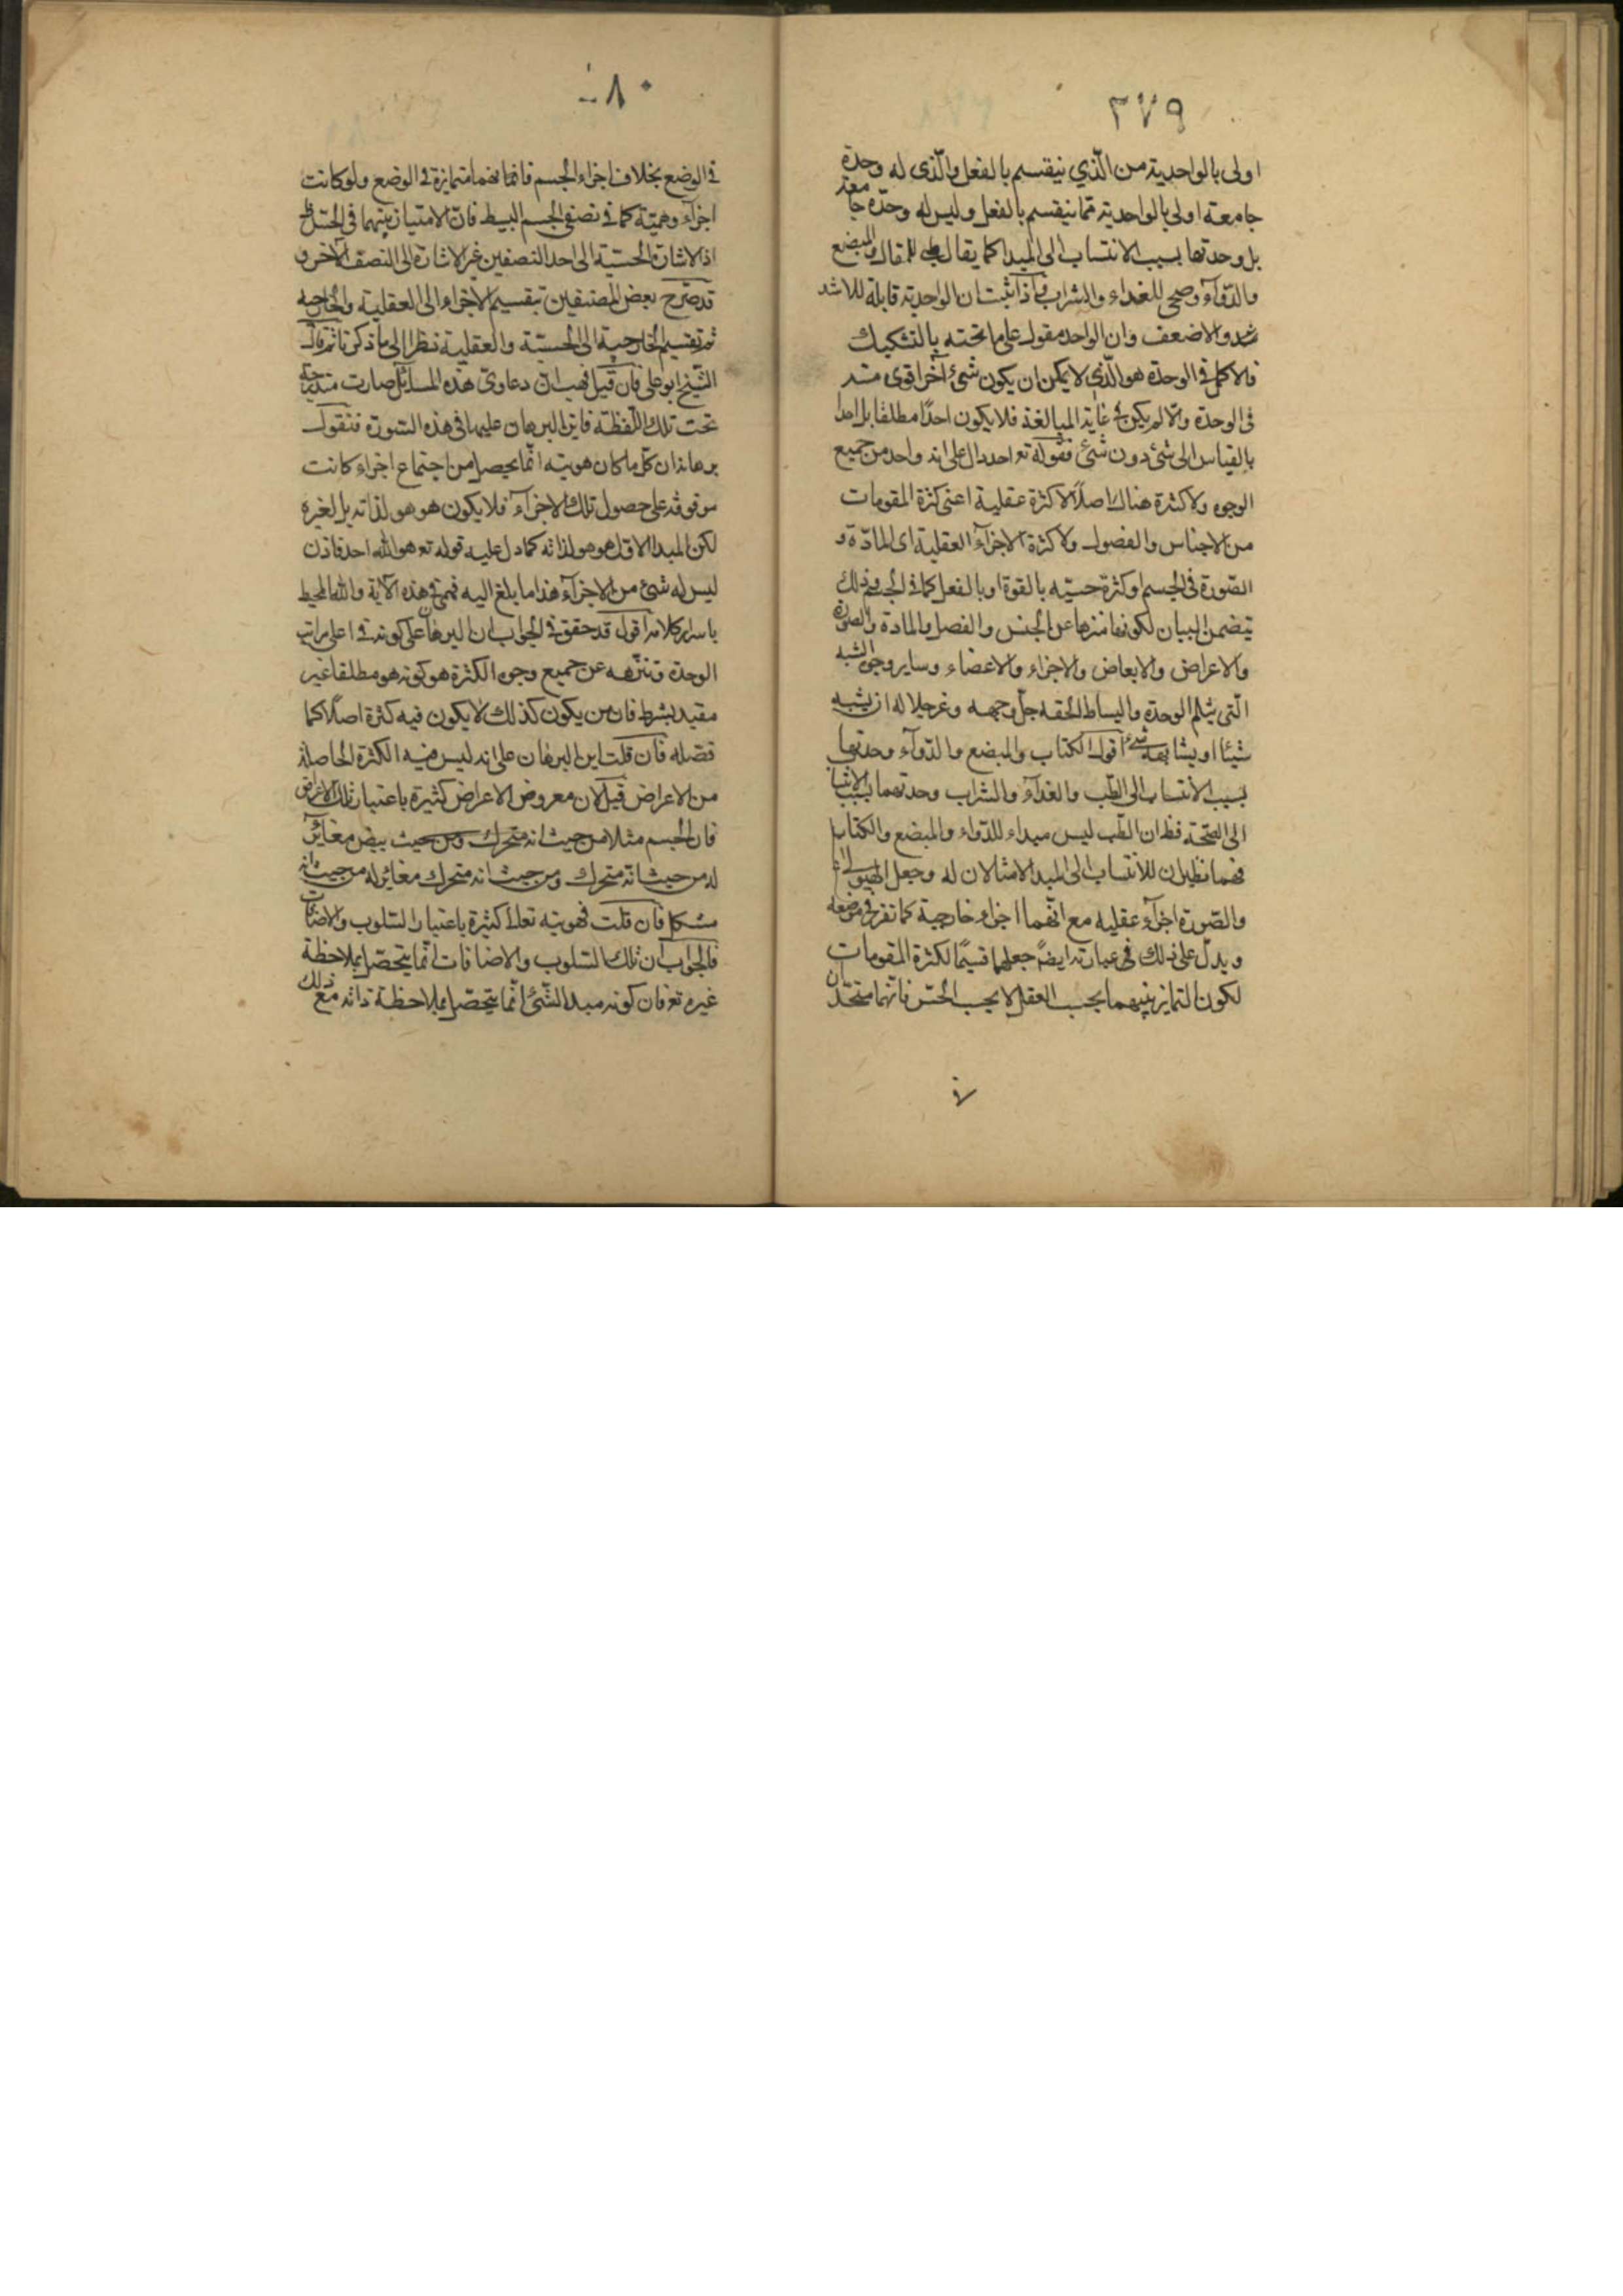 ٣٧٩
اولى بالواحدية من الّذي ينقسم بالفعل والّذى له وحدة
جامعة اولى بالواحدية ممّا ينقسم بالفعل وليس له وحدة جامعة
بل وحدتها بسبب الانتساب الى المبدا كما يقال طبى للمقال والمبضع
والدّوآء وصحى للغداء والشراب فاذا ثبت ان الواحدية قابلة للاشد
والاضعف وان الواحد مقول على ما تحته بالتشكيك
فالاكمل فى الوحدة هو الّذى لا يمكن ان يكون شئ آخر اقوى منه
فى الوحدة والّا لم يكن فى غاية المبالغة فلا يكون احدًا مطلقا بل احدا
بالقياس الى شئ دون شئ فقوله تع احد دال على انه واحد من جميع
الوجوه ولا كثرة هناك اصلًا لا كثرة عقلية اعنى كثرة المقومات
من الاجناس والفصول ولا كثرة الاجزآء العقلية اى المادّة و
الصّورة فى الجسم او كثرة حسيّه بالقوة او بالفعل كما فى الجسم وذلك
يتضمن البيان لكونه منزها عن الجنس والفصل والمادة والصورة
والاعراض والابعاض والاجزاء والاعضاء وساير وجوه الشبه
الّتى يثلم الوحدة والبساطة الحقه جلّ وجهه وعز جلاله ان يشبه
شيئا او يشابهه شئ اقول الكتاب والمبضع والدّوآء وحدتها
بسبب الانتساب الى الطّب والغدآء والشراب وحدتهما بسبب الانتساب
الى الصّحة فظ ان الطّب ليس مبداء للدّواء والمبضع والكتاب
فهما نظيران للانتساب الى المبدا لا مثالان له وجعل الهيولى
والصّورة اجزآء عقليه مع انّهما اجزاء خارجية كما تقرر فى موضعه
ويدلّ على ذلك فى عبارته ايضًا جعلها قسيمًا لكثرة المقومات
لكون التمايز بينهما بحسب العقل لا بحسب الحسّ فانّهما متحدان
٧
٨٠
فى الوضع بخلاف اجزاء الجسم فانها متمايزة فى الوضع ولو كانت
اجزآء وهميّة كما فى نصفى الجسم البسيط فانّ الامتياز بينهما فى الحسّ ظ
اذ الاشارة الحسّية الى احد النصفين غير الاشارة الى النصف الآخر و
قد صّرح بعض المصنفين بتقسيم الاجزاء الى العقلية والخارجية
ثم تقسيم الخارجية الى الحسيّة والعقلية نظرا الى ما ذكرنا ثم قال
الشّيخ ابو على فان قيل فهب انّ دعاوى هذه المسائل صارت مندرجة
تحت تلك اللّفظة فاين البرهان عليها فى هذه السّورة فنقول
برهانه ان كلّ ما كان هويته انّما يحصل من اجتماع اجزاء كانت
موقوفة على حصول تلك الاجزآء فلا يكون هو هو لذاته بل لغيره
لكن المبدا الاوّل هو هو لذاته كما دل عليه قوله تع هو الله احد فاذن
ليس له شئ من الاجزآء هذا ما بلغ اليه فهمى فى هذه الآية والله المحيط
باسرار كلامه اقول قد حقق فى الجواب ان البرهان على كونه فى اعلى مراتب
الوحدة وتنزّهه عن جميع وجوه الكثرة هو كونه هو مطلقا غير
مقيد بشرط فان من يكون كذلك لا يكون فيه كثرة اصلًا كما
فصّله فان قلت اين البرهان على انه ليس فيه الكثرة الحاصلة
من الاعراض قيل لان معروض الاعراض كثيرة باعتبار تلك الاعراض
فان الجسم مثلا من حيث انه متحرك ومن حيث بيض مغائر
له من حيث انّه متحرك ومن حيث انه متحرك مغائر له من حيث انه
متشكل فان قلت فهويته تعالى كثيرة باعتبار السّلوب والاضافات
فالجواب ان تلك السّلوب والاضافات انّما يتحصّل بملاحظة
غيره تع فان كونه مبدا لشّئ انّما يتحصّل بملاحظة ذاته مع ذلك